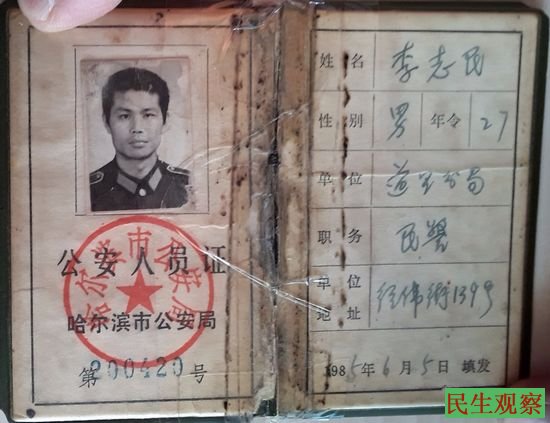 哈尔滨市公安局
公安人员证
哈尔滨市公安局
第200420号
姓名 李志民
性别 男 年令 27
单位 道里分局
职务 民警
单位地址 经伟街139号
1985年6月5日填发
民生观察